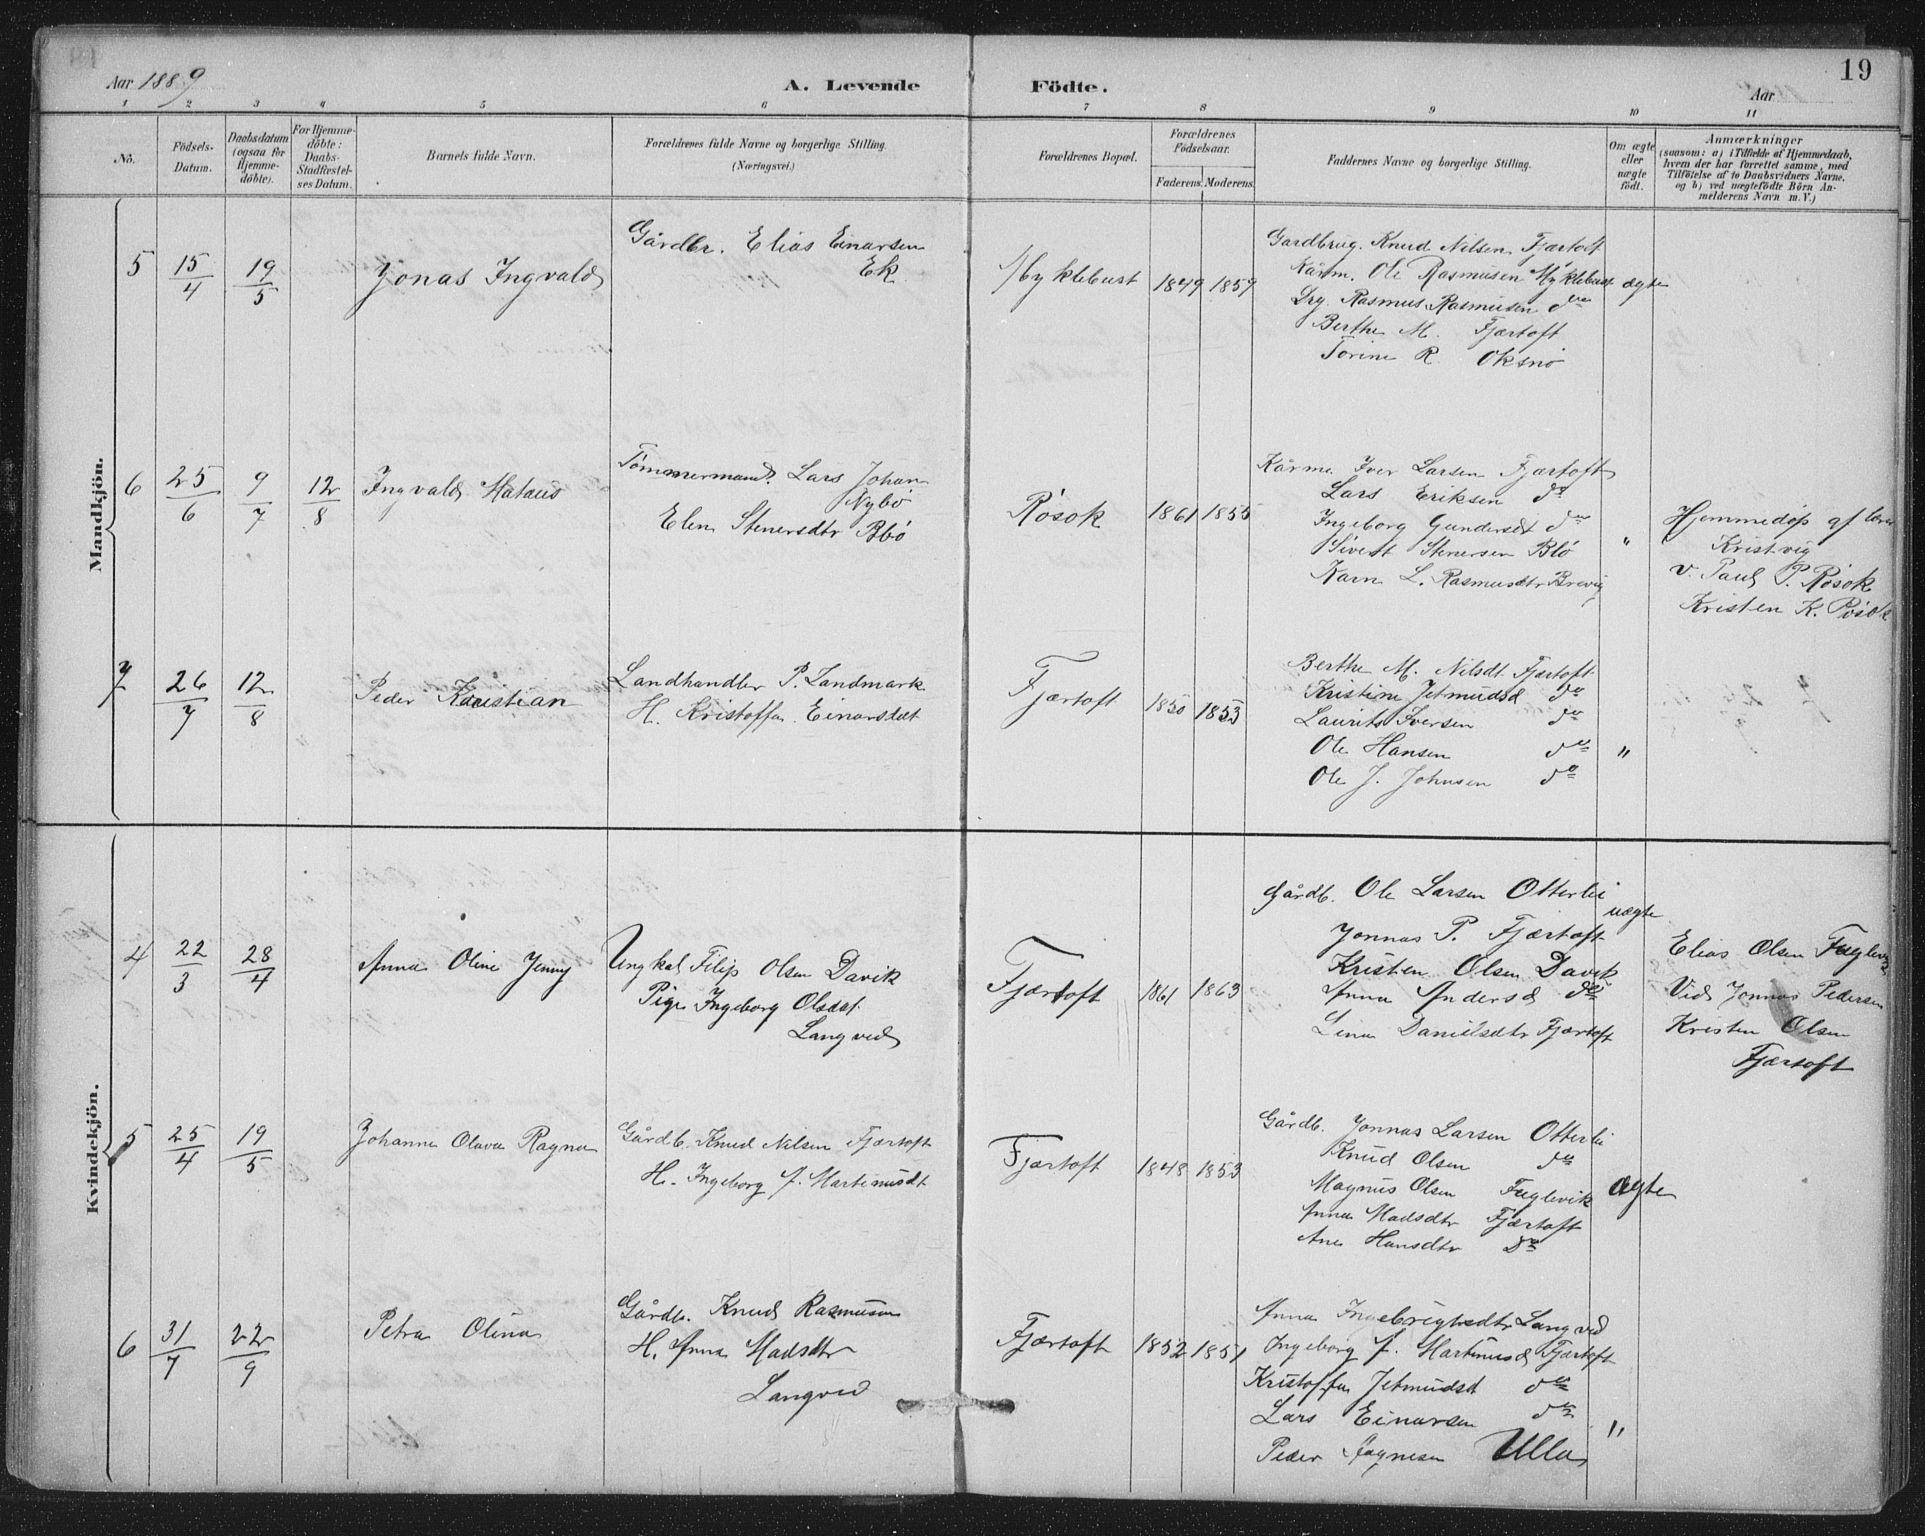 19
Aar 1889 A. Levende Födte. Aar
1 2 3 4 5 6 7 8 9 10 11
No.
Födsels-
Datum.
Daabsdatum
(ogsaa for
Hjemme-
döbte).
For Hjemme-
döbte:
Daabs-
Stadfestel-
ses Datum.
Barnets fulde Navn.
Forældrenes fulde Navne og borgerlige Stilling.
(Næringsvei.)
Forældrenes Bopæl.
Forældrenes
Födselsaar.
Faderens. Moderens.
Faddernes Navne og borgerlige Stilling.
Om ægte
eller
uægte
födt.
Anmærkninger
(saasom: a) i Tilfælde af Hjemmedaab,
hvem der har forrettet samme, med
Tilföielse af to Daabsvidners Navne,
og b) ved uægtefödte Börn An-
melderens Navn m. V.)
Mandkjön.
5 15/4 19/5 Jonas Ingvald
Gårdbr. Elias Einarsen
Ek
Myklebust 1849 1859
Gardbrug. Knud Nilsen Fjærtoft
Kårm. Ole Rasmusen Myklebust
Rasmus Rasmusen do
Berthe M. Fjærtoft
Torine R. Oksnø
ægte
6 25/6 9/7 12/8 Ingvald Mataus
Tømmermand Lars Johan
Nybø
Elen Stenersdtr Blø
Røsok 1861 1855
Kårm. Iver Larsen Fjærtoft
Lars Eriksen do
Ingeborg Gundersdt do
Sivert Stenersen Blø
Karn L. Rasmusdtr Brevig
"
Hjemmedøp af
Kristvig
v. Paul P. Røsok
Kristen K. Røsok
7 26/7 12/8 Peder Kristian
Landhandler P. Landmark
H. Kristoffa Einarsdat
Fjærtoft 1850 1853
Berthe M. Nilsdt Fjærtoft
Kristine Jetmudsd do
Laurits Iversen do
Ole Hansen do
Ole J. Johnsen do
"
Kvindekjön.
4 22/3 28/4 Anna Oline Jenny
Ungkal Filip Olsen Davik
Pige Ingeborg Olsdat.
Langved
Fjærtoft 1861 1863
Gårdb. Ole Larsen Otterlei
Jonnas P. Fjærtoft
Kristen Olsen Davik
Anna Andersd do
Lina Danielsdtr Fjærtoft
uægte
Elias Olsen Fuglevik
Vid Jonnas Pedersen
Kristen Olsen
Fjærtoft
5 25/4 19/5 Johanna Olava Ragna
Gårdb. Knud Nilsen Fjærtoft
H. Ingeborg A. Martinusdt
Fjærtoft 1848 1853
Gårdb. Jonnas Larsen Otterlei
Knud Olsen do
Magnus Olsen Fuglevik
Anna Madsdtr Fjærtoft
Ane Hansdtr Do
ægte
6 31/7 22/9 Petra Olina
Gårdb. Knud Rasmusen
H. Anna Madsdtr
Langved
Fjærtoft 1852 1851
Anna Ingebrigtsdtr Langved
Ingeborg A. Martinusd Fjærtoft
Kristoffa Jetmudsd do
Lars Einarsen do
Peder Aagnesen Ulla
"